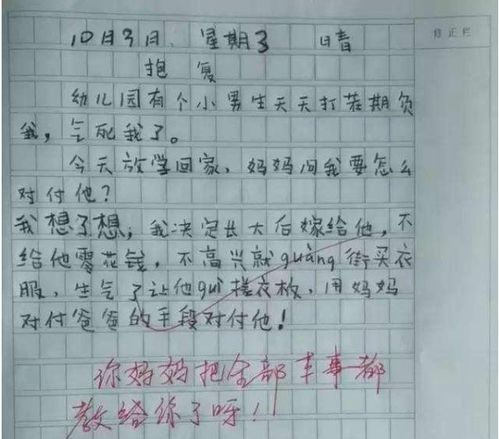 10月3日. 星期3 日晴
抱复
幼儿园有个小男生天天打若期负
我，气死我了。
今天放学回家，妈妈问我要怎么
对付他？
我想了想，我决定长大后嫁给他，不
给他零花钱，不高兴就guàng街买衣
服，生气了让他guì搓衣板，用妈妈
对付爸爸的手段对付他！
你妈妈把全部本事都
教给你了呀！
修正栏